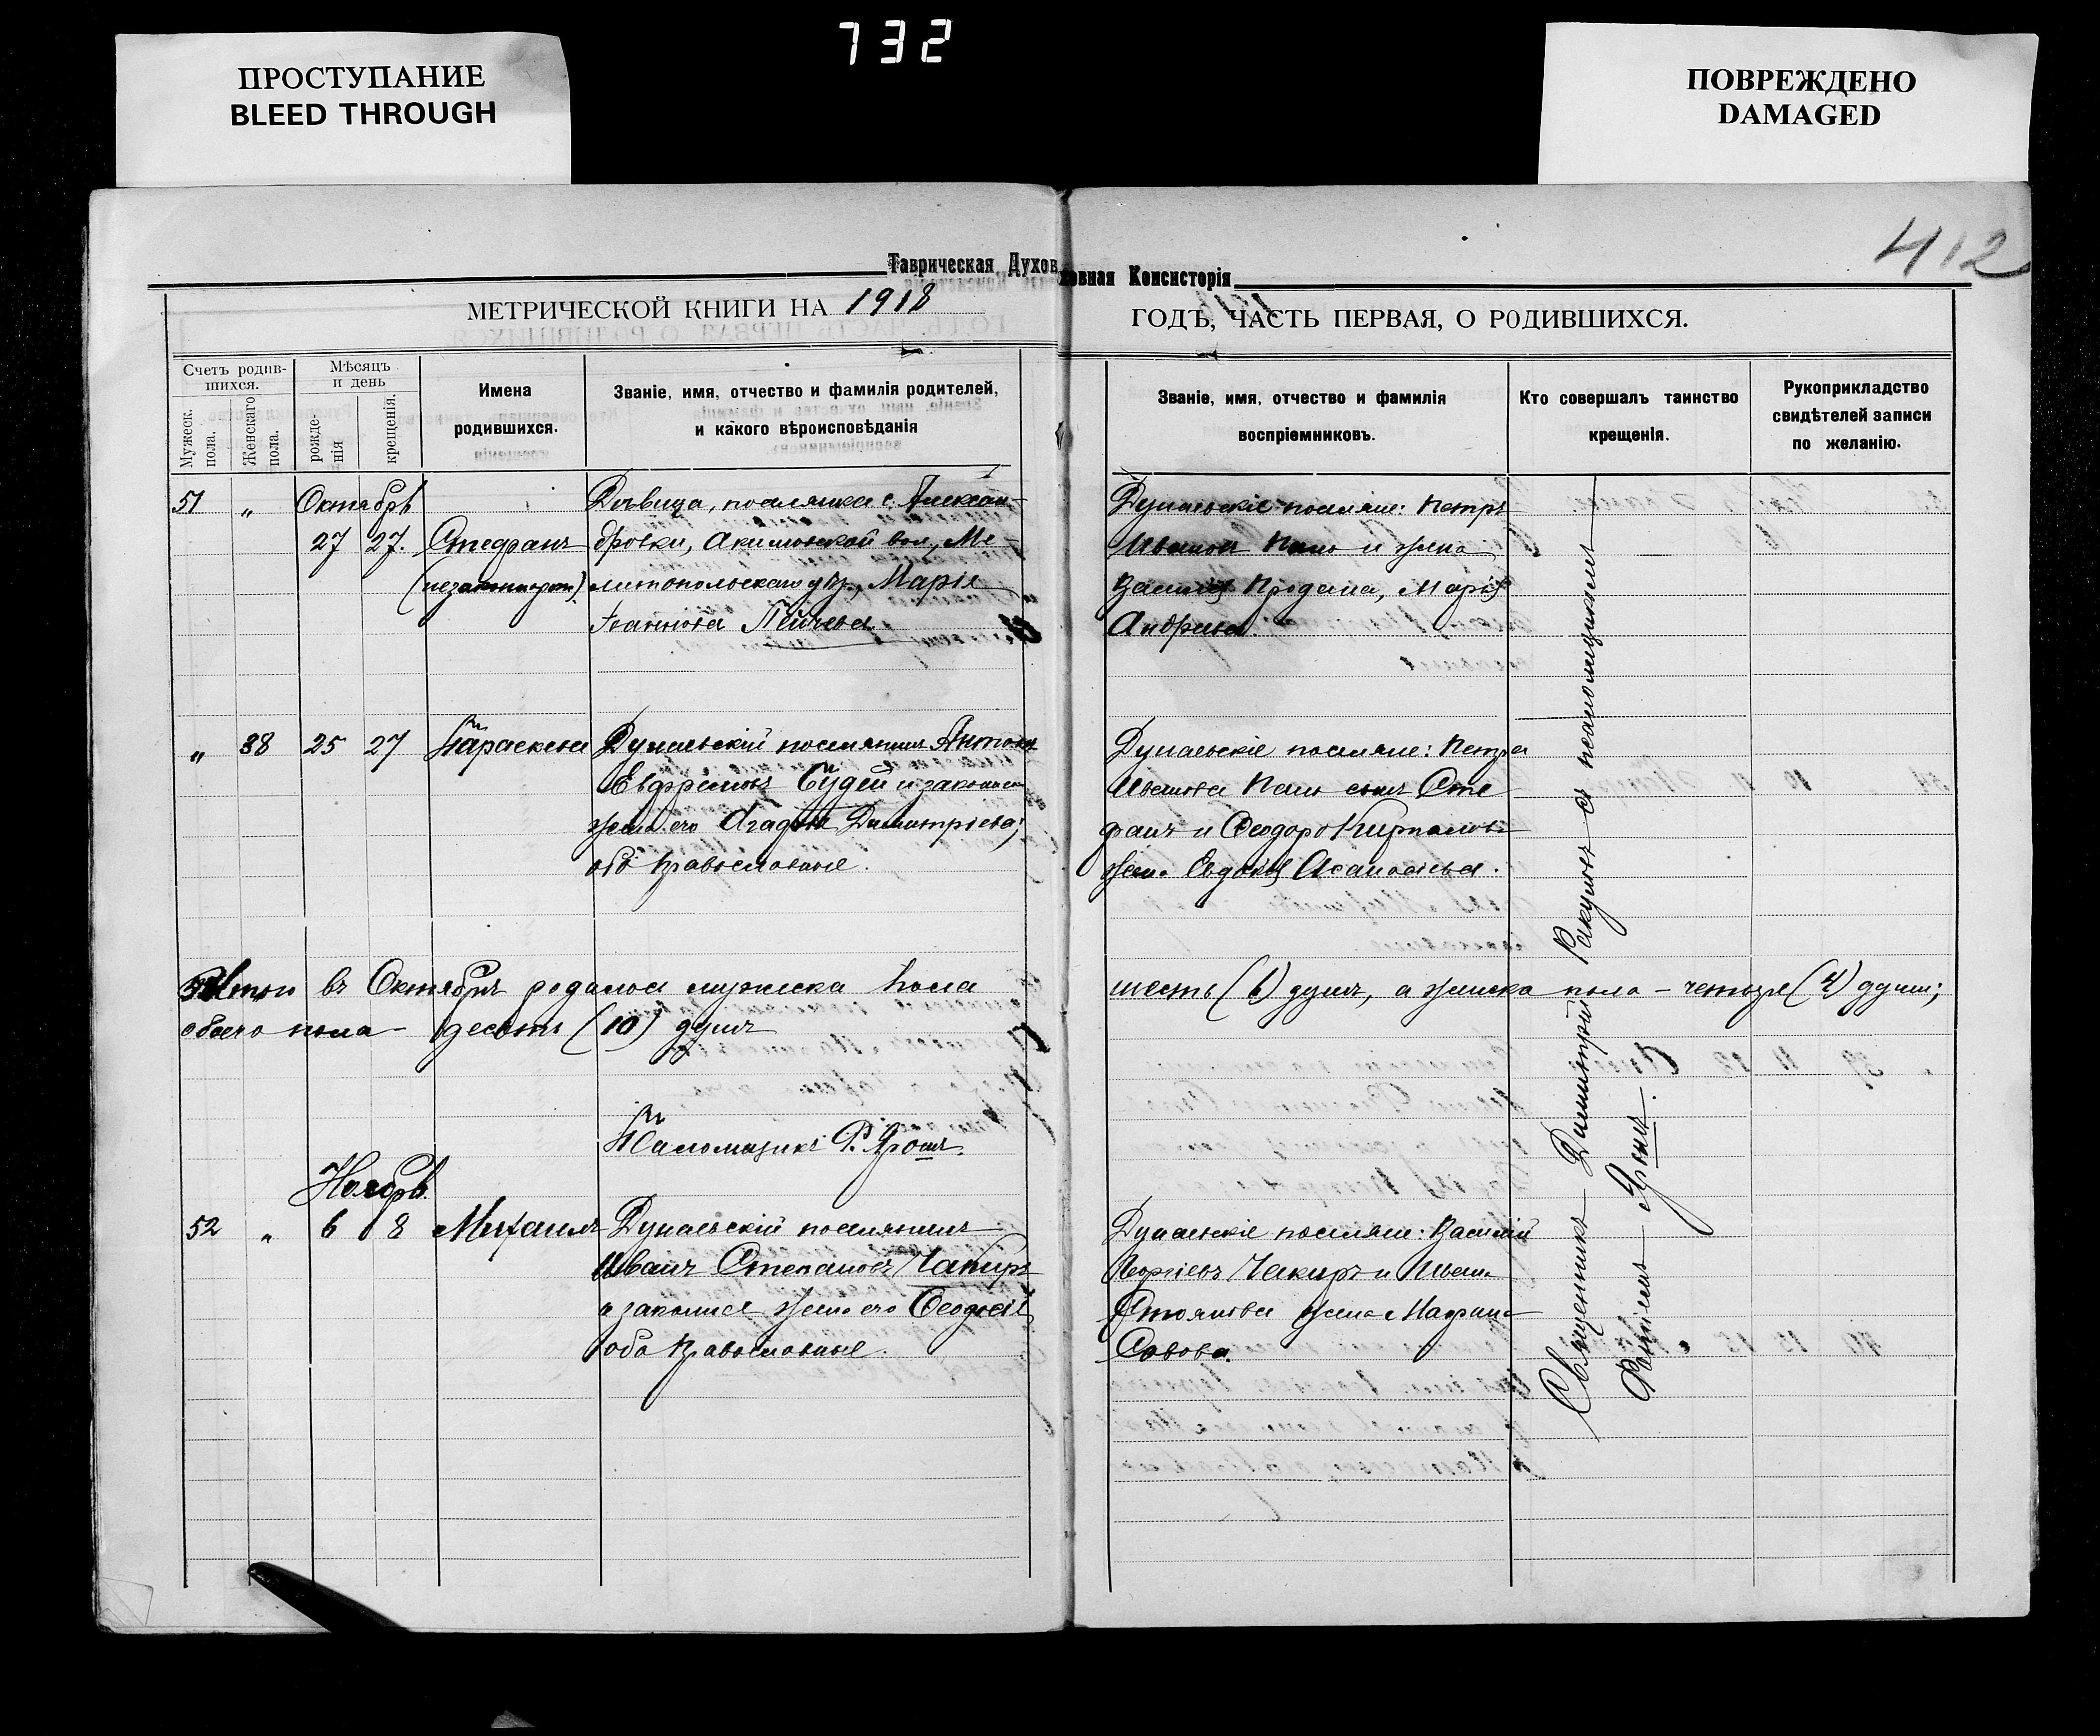 732
ПРОСТУПАНИЕ
BLEED THROUGH
ПОВРЕЖДЕНО
DAMAGED
412
Таврическая Духовная Консисторія
МЕТРИЧЕСКОЙ КНИГИ НА 1918
ГОДЪ, ЧАСТЬ ПЕРВАЯ, О РОДИВШИХСЯ.
Счетъ родив-
шихся.
Мужеск.
пола.
Женскаго
пола.
Мѣсяцъ
и день
рожде-
нія
крещенія.
Имена
родившихся.
Званіе, имя, отчество и фамилія родителей,
и какого вѣроисповѣданія
Званіе, имя, отчество и фамилія
воспріемниковъ.
Кто совершалъ таинство
крещенія.
Рукоприкладство
свидѣтелей записи
по желанію.
51 " Октябрь
27 27. Стефанъ
Дѣвица, поселянка с. Алексан-
дровки, Акимовской вол, Ме-
литопольскаго у., Марія
Іоаннова Пейчева.
Дунаевскіе поселяне: Петръ
Ивановъ и жена
Продана, Марія
Андреева.
" 38 25 27 Параскева
Дунаевскій поселянинъ Антонъ
Евфремовъ и законная
жена его Агафія Димитріева;
оба православные.
Дунаевскіе поселяне: Петра
Иванова сынъ Сте
фанъ и Феодора
жена Евдокія Аѳанасьева.
Итого въ Октябрѣ родилось мужеска пола
шесть (6) душъ, а женска пола - четыре (4) души;
обоего пола - десять (10) душъ
Псаломщикъ Ѳ. Ярошъ.
Ноябрь.
52 " 6 8 Михаилъ
Дунаевскій поселянинъ
Иванъ Степановъ Чакиръ
и законная жена его Феодосія
оба православные.
Дунаевскіе поселяне: Василій
Георгіевъ Чакиръ и Ивана
Стоянова жена Марина
Савова.
Священникъ Димитрій съ псаломщикомъ
Ярошъ.